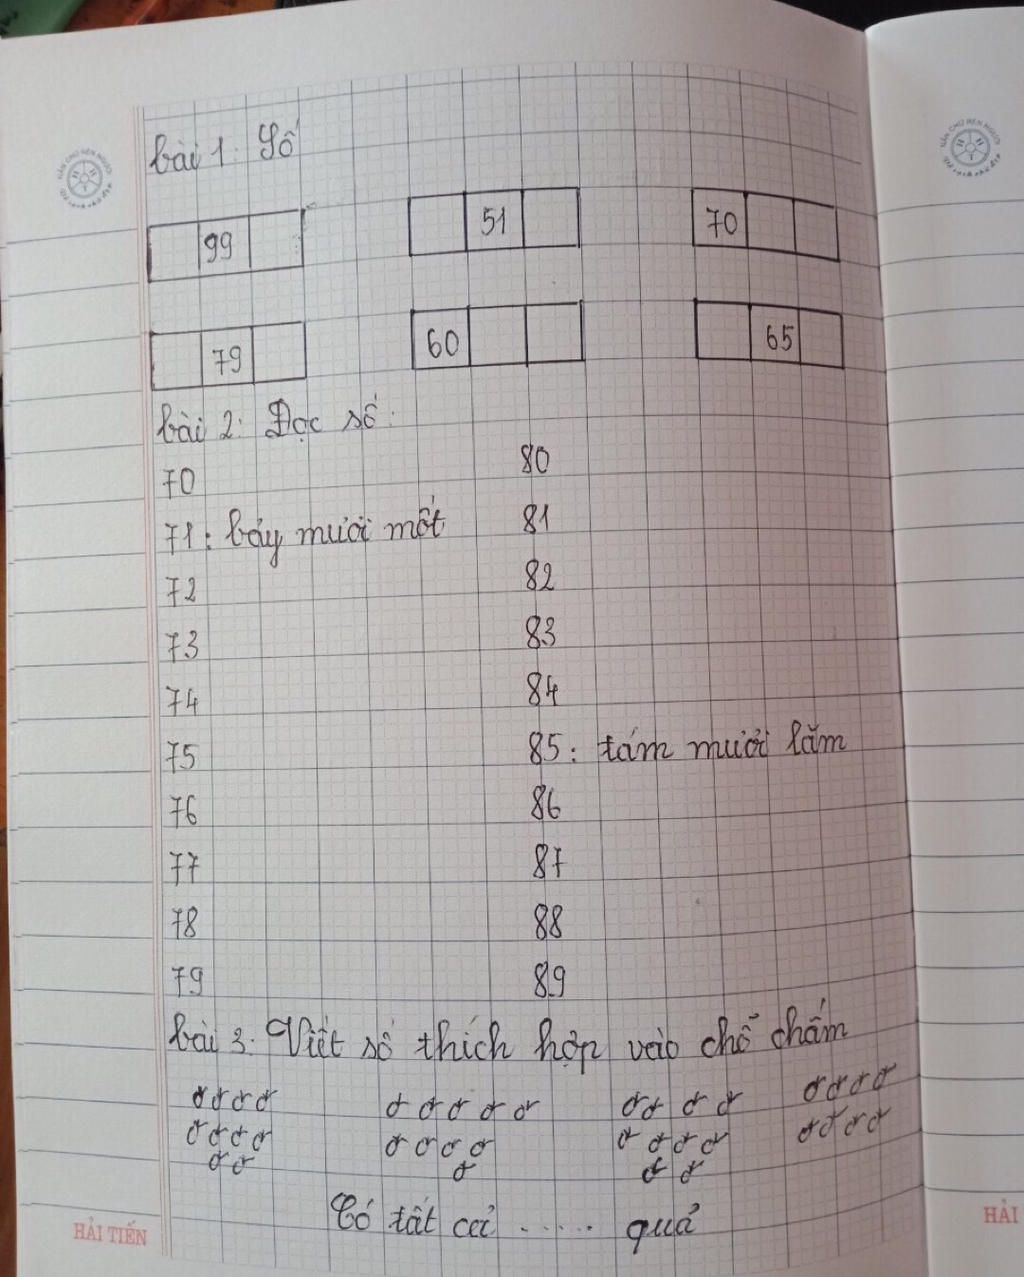 bài 1: Số
99 51 70
79 60 65
bài 2: Đọc số:
70 80
71: bảy mươi mốt 81
72 82
73 83
74 84
75 85: tám mươi lăm
76 86
77 87
78 88
79 89
bài 3: Viết số thích hợp vào chỗ chấm
Có tất cả ...... quả
HẢI TIẾN
HẢI